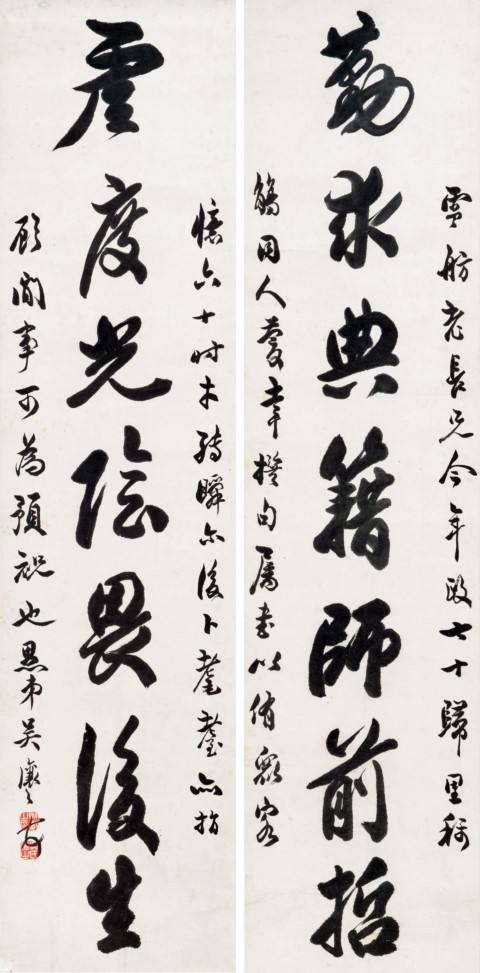 雪舫老長兄今年政七十歸里稱
勤求典籍師前哲
觴同人幸撰句屬書以侑客
憶六十時轉瞬亦後卜耄耋亦指
虛度光陰畏後生
顧間事可為預祝也愚弟吳讓之